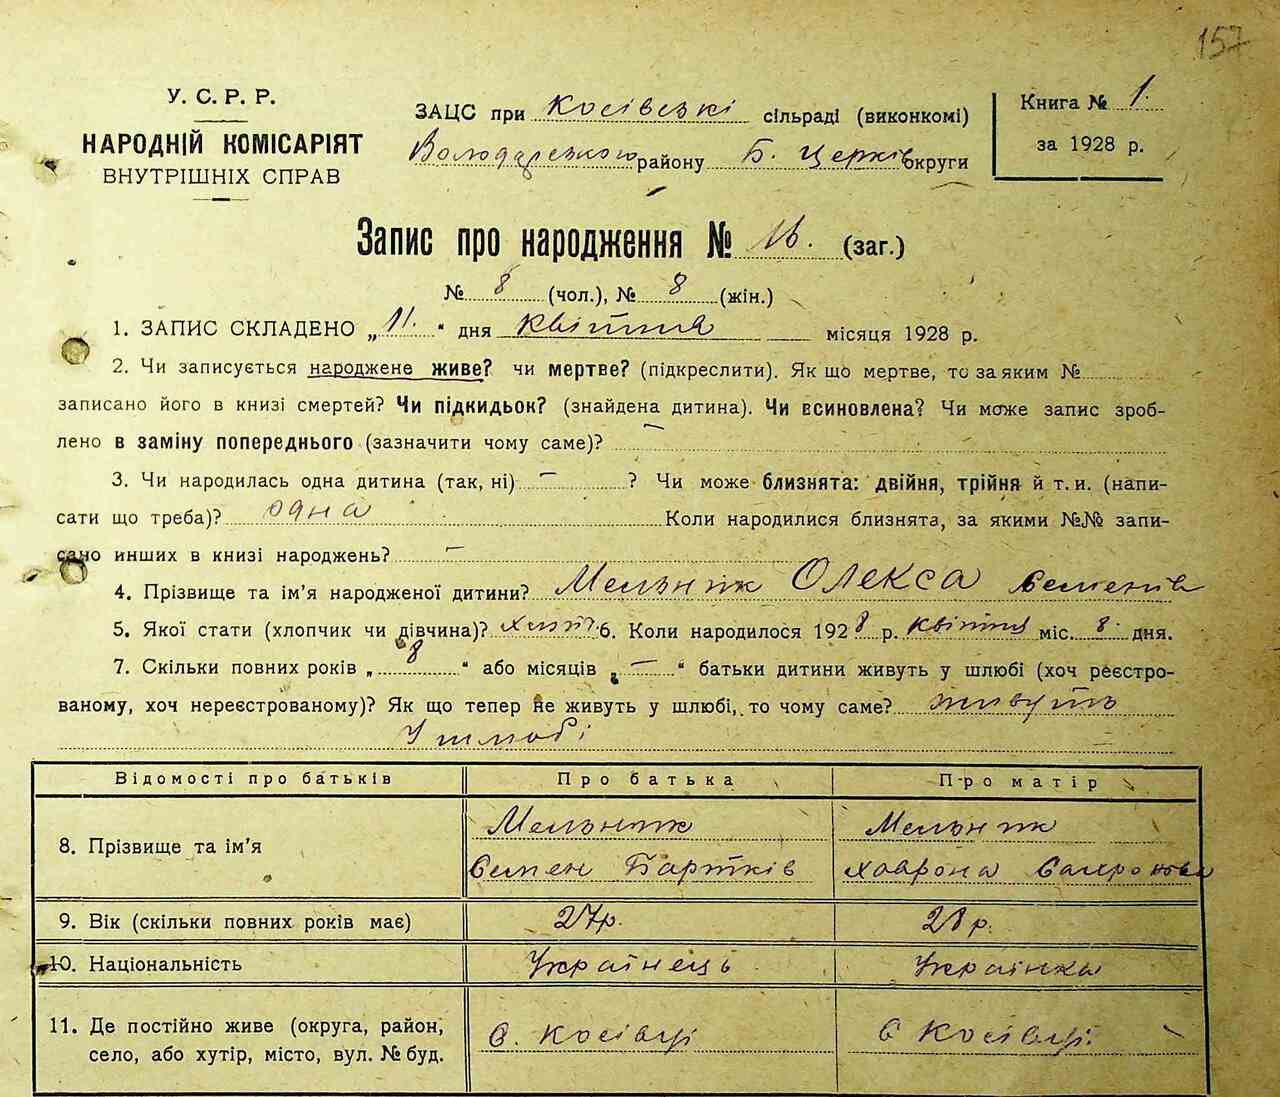 157
У. С. Р. Р.
НАРОДНІЙ КОМІСАРІЯТ
ВНУТРІШНІХ СПРАВ
ЗАЦС при Косівскі сільраді (виконкомі)
Володарського району Б. Церків округи
Книга № 1.
за 1928 р.
Запис про народження № 16. (заг.)
№ 8 (чол.), № 8 (жін.)
1. ЗАПИС СКЛАДЕНО „11.“ дня квітня місяця 1928 р.
2. Чи записується народжене живе? чи мертве? (підкреслити). Як що мертве, то за яким №
записано його в книзі смертей? Чи підкидьок? (знайдена дитина). Чи всиновлена? Чи може запис зроб-
лено в заміну попереднього (зазначити чому саме)? —
3. Чи народилась одна дитина (так, ні) — ? Чи може близнята: двійня, трійня й т. и. (напи-
сати що треба)? одна Коли народилися близнята, за якими №№ запи-
сано инших в книзі народжень? —
4. Прізвище та ім'я народженої дитини? Мельник Олекса Семенів
5. Якої стати (хлопчик чи дівчина)? хлоп. 6. Коли народилося 1928 р. квітня міс. 8 дня.
7. Скільки повних років „8“ або місяців „—“ батьки дитини живуть у шлюбі (хоч реєстро-
ваному, хоч нереєстрованому)? Як що тепер не живуть у шлюбі, то чому саме? живуть
У шлюбі
Відомості про батьків Про батька Про матір
8. Прізвище та ім'я Мельник Мельник
Семен Бартків Хаврона
9. Вік (скільки повних років має) 27 р. 28 р.
10. Національність Українець Українка
11. Де постійно живе (округа, район,
село, або хутір, місто, вул. № буд.
с. Косівці с Косівці.